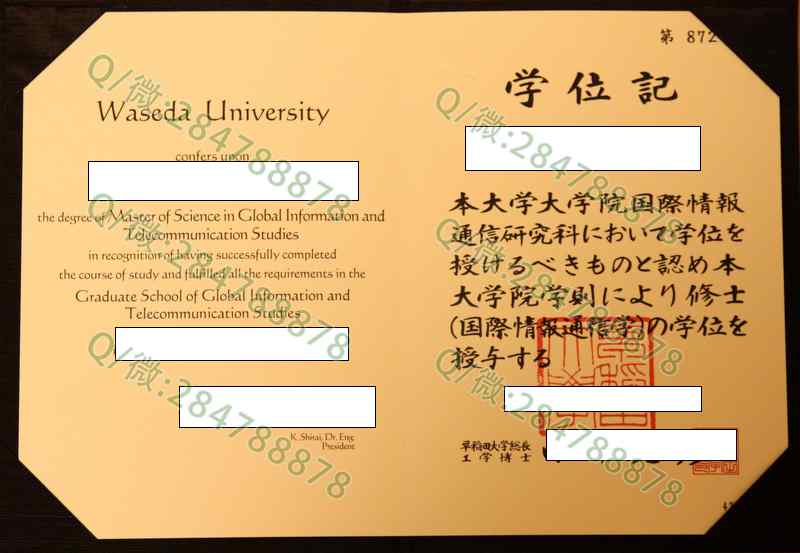 Waseda University
confers upon
the degree of Master of Science in Global Information and
Telecommunication Studies
in recognition of having successfully completed
the course of study and fulfilled all the requirements in the
Graduate School of Global Information and
Telecommunication Studies
K. Shirai, Dr. Eng.
President
第 872
学位記
本大学大学院国際情報
通信研究科において学位を
授けるべきものと認め本
大学院学則により修士
(国際情報通信学)の学位を
授与する
早稲田大学総長
工学博士
Q/微:284788878
Q/微:284788878
Q/微:284788878
Q/微:284788878
Q/微:284788878
Q/微:284788878